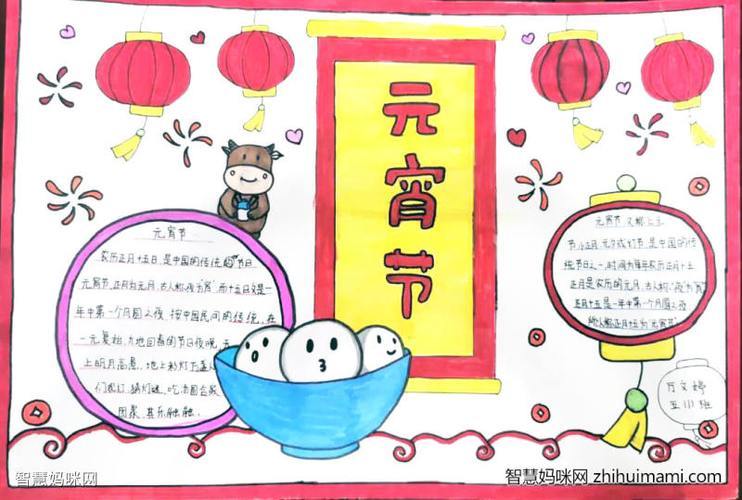 元宵节
元宵节
农历正月十五日是中国的传统节日
元宵节,正月为元月,古人称夜为宵,而十五日又是一
年中第一个月圆之夜 按中国民间的传统,在
一元复始,大地回春的节日夜晚,天
上明月高悬,地上彩灯万盏人
们观灯,猜灯谜,吃汤圆合家
团聚,其乐融融。
元宵节又称上元
节小正月元夕或灯节是中国的传
统节日之一,时间为每年农历正月十五
正月是农历的元月,古人称"夜为宵"
正月十五是一年中第一个月圆之夜
所以称正月十五为"元宵节"
五小班
智慧妈咪网
智慧妈咪网 zhihuimami.com